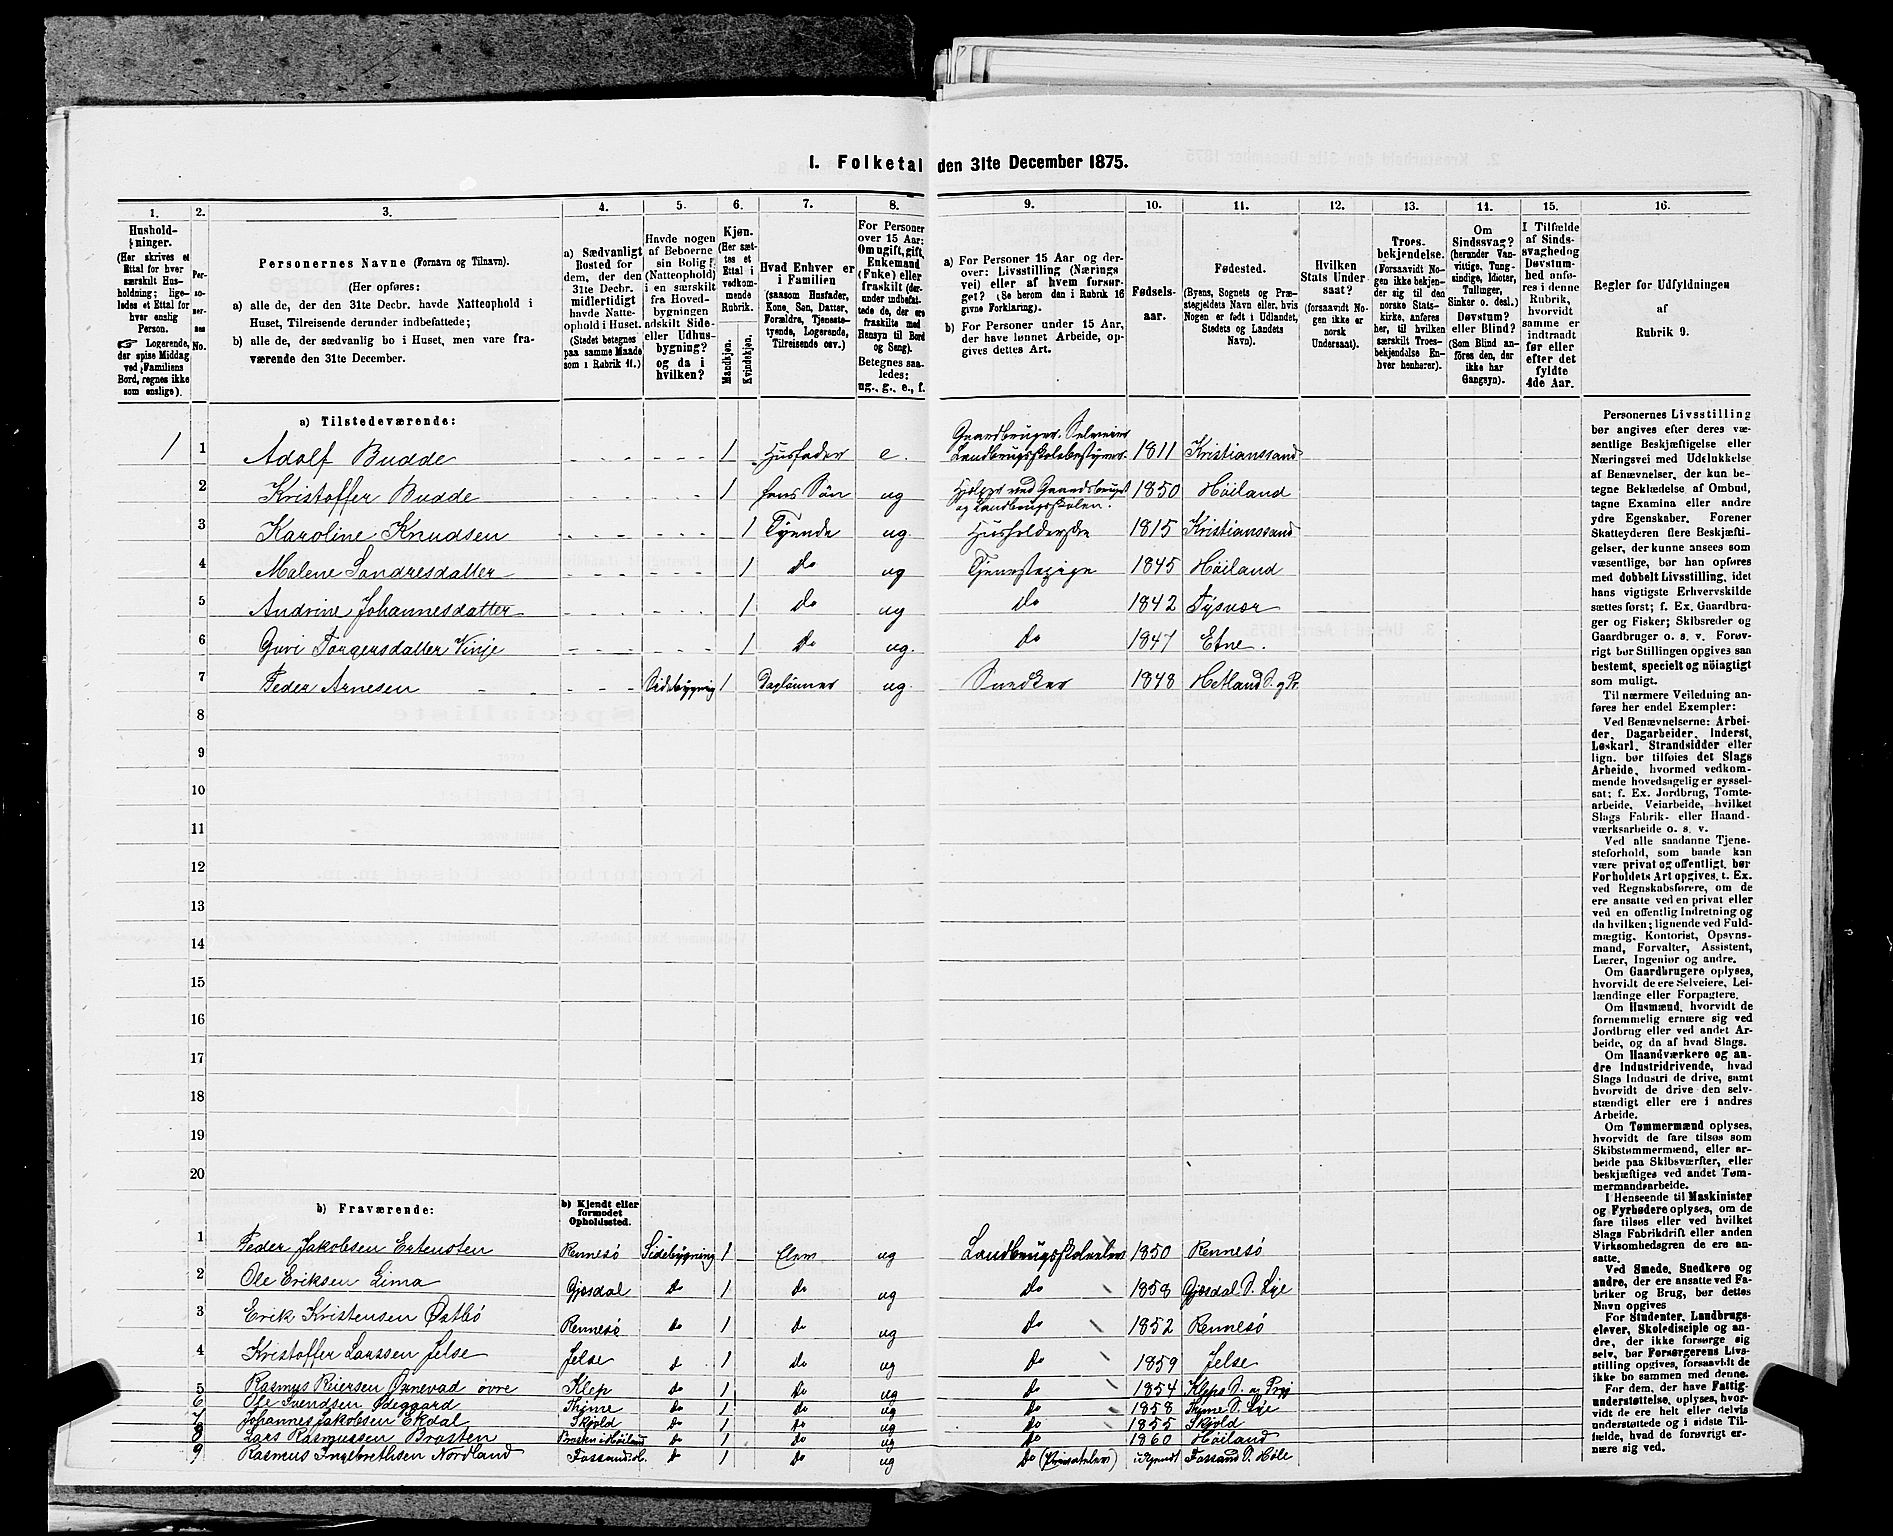 1. Folketal den 31te December 1875.
1.
Hushold-
ninger.
(Her skrives et
Ettal for hver
særskilt Hus-
holdning; lige-
ledes et Ettal for
hver enslig
Person.
☞ Logerende,
der spise Middag
ved Familiens
Bord, regnes ikke
som enslige).
2.
Per-
so-
ner-
nes
No.
3.
Personernes Navne (Fornavn og Tilnavn).
(Her opføres:
a) alle de, der den 31te Decbr. havde Natteophold i
Huset, Tilreisende derunder indbefattede;
b) alle de, der sædvanlig bo i Huset, men vare fra-
værende den 31te December.
4.
a) Sædvanligt
Bosted for
dem, der den
31te Decbr.
midlertidigt
havde Natte-
ophold i Huset.
(Stedet betegnes
paa samme Maade
som i Rubrik 11.)
5.
Havde nogen
af Beboerne
sin Bolig
(Natteophold)
i en særskilt
fra Hoved-
bygningen
adskilt Side-
eller Udhus-
bygning?
og da i
hvilken?
6.
Kjøn.
(Her sæt-
tes et
Ettal i
vedkom-
mende
Rubrik.
Mandkjøn.
Kvindekjøn.
7.
Hvad Enhver er
i Familien
(saasom Husfader,
Kone, Søn, Datter,
Forældre, Tjeneste-
tyende, Logerende,
Tilreisende osv.)
8.
For Personer
over 15 Aar:
Om ugift, gift,
Enkemand
(Enke) eller
fraskilt (der-
under indbefat-
tede de, der ere
fraskilte med
Hensyn til Bord
og Seng).
Betegnes saa-
ledes:
ug., g., e., f.
9.
a) For Personer 15 Aar og der-
over: Livsstilling (Nærings
vei) eller af hvem forsør-
get? (Se herom den i Rubrik 16
givne Forklaring).
b) For Personer under 15 Aar,
der have lønnet Arbeide, op-
gives dettes Art.
10.
Fødsels-
aar.
11.
Fødested.
(Byens, Sognets og Præ-
stegjeldets Navn eller, hvis
Nogen er født i Udlandet,
Stedets og Landets
Navn).
12.
Hvilken
Stats Under-
saat?
(forsaavidt No-
gen ikke er
norsk
Undersaat).
13.
Troes-
bekjendelse.
(Forsaavidt No-
gen ikke bekjen-
der sig til den
norske Stats-
kirke, anføres
her, til hvilken
særskilt Troes-
bekjendelse En-
hver henhører).
14.
Om
Sindssvag?
(herunder Van-
vittige, Tung-
sindige, Idioter,
Tullinger,
Sinker o. desl.)
Døvstum?
eller Blind?
(Som Blind an-
føres den, der
ikke har
Gangsyn).
15.
I Tilfælde
af Sinds-
svaghed og
Døvstum-
hed anfø-
res i denne
Rubrik,
hvorvidt
samme er
indtraadt
før eller
efter det
fyldte
4de Aar.
16.
Regler for Udfyldningen
af
Rubrik 9.
a) Tilstedeværende:
1 1 Adolf Budde 1 Husfader e. Gaardbruger. Selveier Landbrugsskolebestyrer. 1811 Kristianssand
2 Kristoffer Budde 1 hans Søn ug Hjelper ved Gaardsbruget og Landbrugsskolen. 1850 Høiland
3 Karoline Knudsen 1 Tyende ug. Husholderske 1815 Kristianssand
4 Malene Sandresdatter 1 do ug Tjenestepige 1845 Høiland
5 Andrine Johannesdatter 1 do ug do 1842 Tysvær
6 Guri Torgersdatter Vinje 1 do ug. do 1847 Etne.
7 Peder Arnesen Sidebygning 1 Daglønner ug. Snedker 1848 Hetland S. og Pr.
8
9
10
11
12
13
14
15
16
17
18
19
20
b) Fraværende:
b) Kjendt eller
formodet
Opholdssted.
1 Peder Jakobsen Ertensten Rennesø Sidebygning 1 Elev ug Landbrugsskoleelev 1850 Rennesø
2 Ole Eriksen Lima Gjesdal do 1 do ug do 1858 Gjesdal S. Lye
3 Erik Kristensen Østbø Rennesø do 1 do ug do 1852 Rennesø
4 Kristoffer Larssen Jelse Jelse do 1 do ug do 1859 Jelse
5 Rasmus Reiersen Ornevad øvre Klep do 1 do ug do 1854 Kleps S. og Prgj
6 Ole Svendsen Ødegaard Thime do 1 do ug do 1858 Thime S. Lye
7 Johannes Jakobsen Ekdal Skjold do 1 do ug do 1855 Skjold
8 Lars Rasmussen Brasten Brasten i Høiland do 1 do ug do 1860 Høiland
9 Rasmus Ingebrethsen Nordland Fossand i H. do 1 do ug do (Privatelev) Fossand S. Høle
Personernes Livsstilling
bør angives efter deres væ-
sentlige Beskjæftigelse eller
Næringsvei med Udelukkelse
af Benævnelser, der kun be-
tegne Beklædelse af Ombud,
tagne Examina eller andre
ydre Egenskaber. Forener
Skatteyderen flere Beskjæfti-
gelser, der kunne ansees som
væsentlige, bør han opføres
med dobbelt Livsstilling, idet
hans vigtigste Erhvervskilde
sættes først; f. Ex. Gaardbru-
ger og Fisker; Skibsreder og
Gaardbruger o. s. v. Forøv-
rigt bør Stillingen opgives saa
bestemt, specielt og nøiagtigt
som muligt.
Til nærmere Veiledning an-
føres her endel Exempler:
Ved Benævnelserne: Arbei-
der, Dagarbeider, Inderst,
Løskarl, Strandsidder eller
lign. bør tilføies det Slags
Arbeide, hvormed vedkom-
mende hovedsagelig er syssel-
sat; f. Ex. Jordbrug, Tomte-
arbeide, Veiarbeide, hvilket
Slags Fabrik- eller Haand-
værksarbeide o. s. v.
Ved alle saadanne Tjene-
steforhold, som baade kan
være privat og offentligt, bør
Forholdets Art opgives, t. Ex.
ved Regnskabsførere, om de
ere ansatte ved en privat eller
ved en offentlig Indretning og
da hvilken; lignende ved Fuld-
mægtig, Kontorist, Opsyns-
mand, Forvalter, Assistent,
Lærer, Ingeniør og andre.
Om Gaardbrugere oplyses,
hvorvidt de ere Selveiere, Lei-
lændinge eller Forpagtere.
Om Husmænd, hvorvidt de
fornemmelig ernære sig ved
Jordbrug eller ved andet Ar-
beide, og da af hvad Slags.
Om Haandværkere og an-
dre Industridrivende, hvad
Slags Industri de drive, samt
hvorvidt de drive den selv-
stændigt eller ere i andres
Arbeide.
Om Tømmermænd oplyses,
hvorvidt de fare tilsøs som
Skibstømmermænd, eller ar-
beide paa Skibsværfter, eller
beskjæftiges ved andet Tøm-
mermandsarbeide.
I Henseende til Maskinister
og Fyrbødere oplyses, om de
fare tilsøs eller ved hvilket
Slags Fabrikdrift eller anden
Virksomhedsgren de ere an-
satte.
Ved Smede, Snedkere og
andre, der ere ansatte ved Fa-
briker og Brug, bør dettes
Navn opgives
For Studenter, Landbrugs-
elever, Skoledisciple og an-
dre, der ikke forsørge sig
selv, bør Forsørgerens Livs-
stilling opgives, forsaavidt de
ikke bo sammen med denne.
For dem, der have Fattig-
understøttelse, oplyses, hvor-
vidt de ere helt eller delvis
understøttede og i sidste Til-
fælde, hvad de forøvrigt er-
nære sig ved.